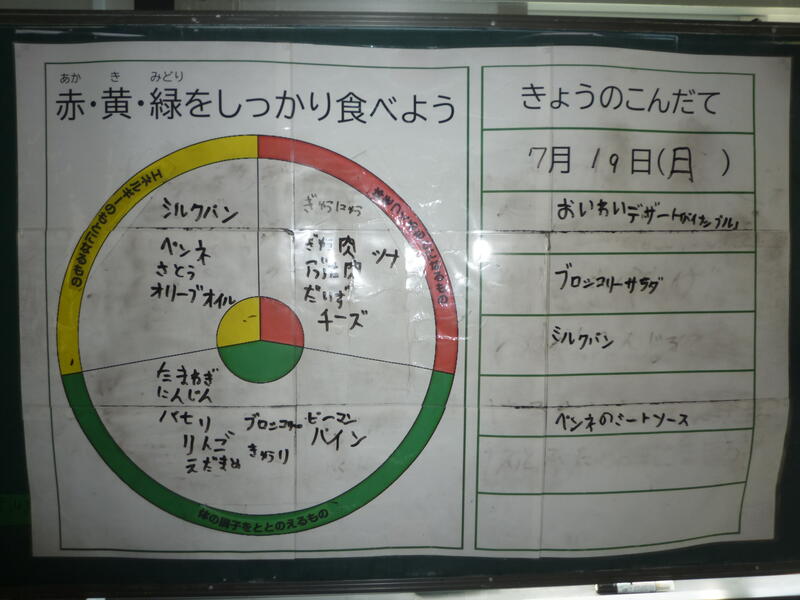 あか き みどり
赤・黄・緑をしっかり食べよう
エネルギーのもとになるもの
シルクパン
ペンネ
さとう
オリーブオイル
ぎゅうにゅう
ぎゅう肉
ぶた肉
ツナ
だいず
チーズ
たまねぎ
にんじん
パセリ
ブロッコリー
ピーマン
りんご
きゅうり
パイン
えだまめ
体の調子をととのえるもの
きょうのこんだて
7月 19日(日 )
おいわいデザート
ブロッコリーサラダ
ミルクパン
ペンネのミートソース